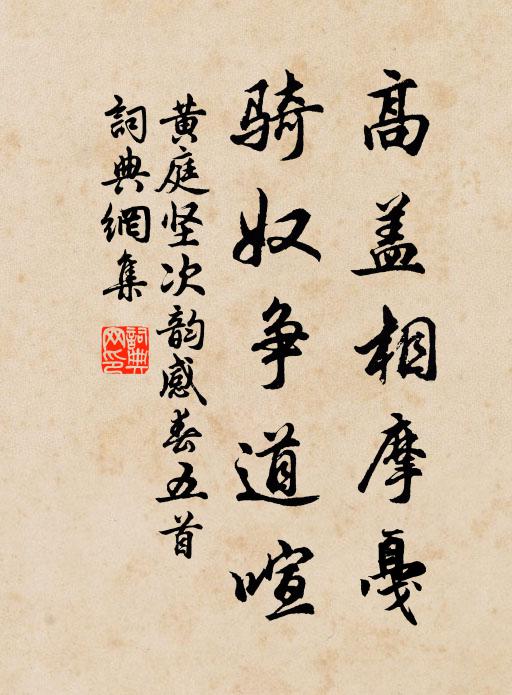 高盖相摩戛
骑奴争道喧
黄庭坚次韵感春五首
詞典網集
詞典
网印